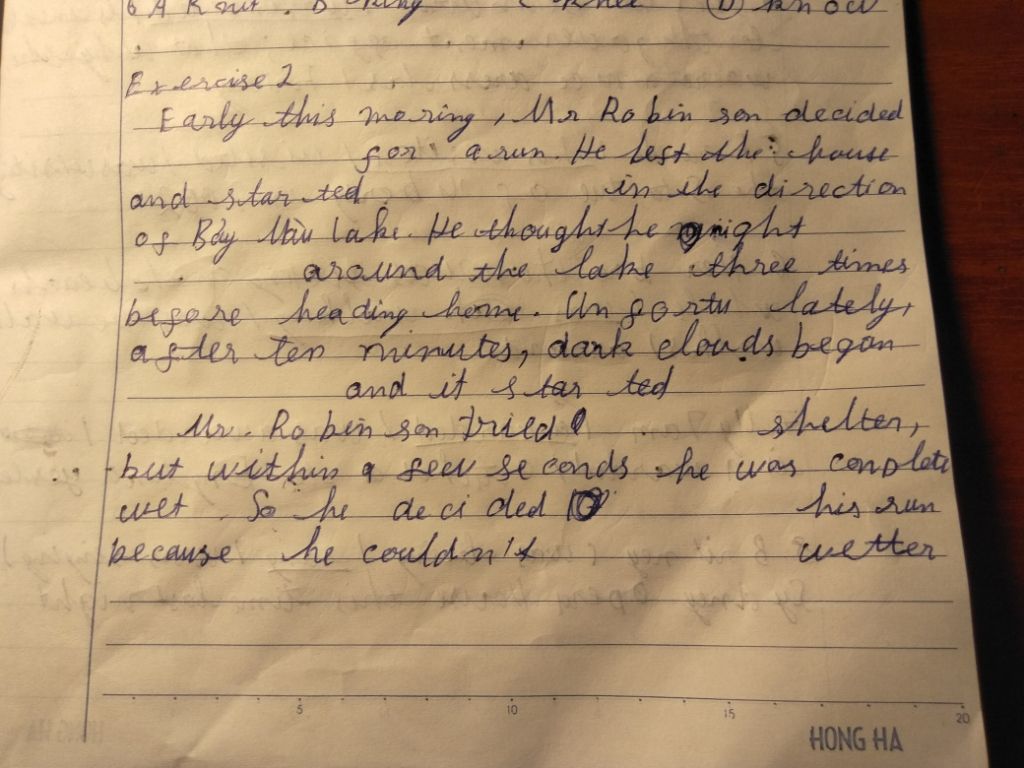 6 A Knit . B King C Knee D know
Exercise 2
Early this moring, Mr Robinson decided
for a run. He lest the house
and started in the direction
of Bảy Mẫu lake. He thought he might
around the lake three times
before heading home. Unfortulately,
after ten minutes, dark clouds began
and it started
Mr. Robinson tried shelter,
but within a few seconds he was conplete
wet. So he decided his run
because he couldn't wetter
5 10 15 20
HONG HA